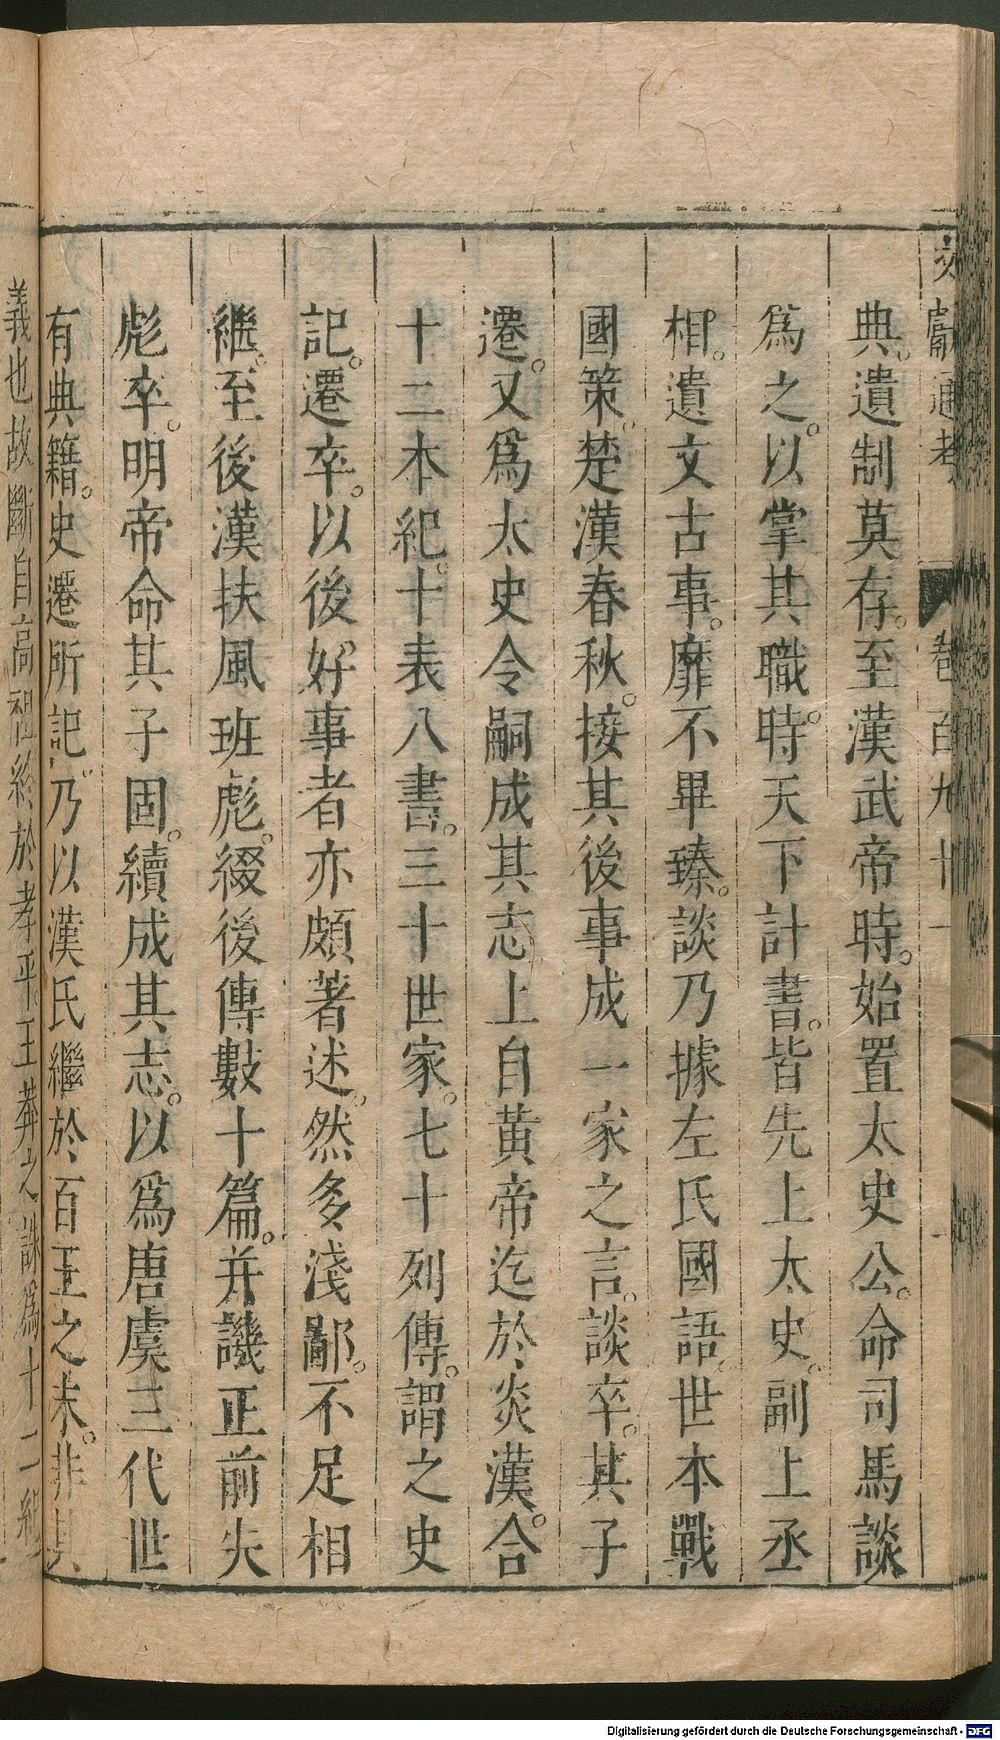 文獻通考 卷百九十一
典。遺制莫存。至漢武帝時。始置太史公。命司馬談
爲之。以掌其職。時天下計書。皆先上太史。副上丞
相。遺文古事。靡不畢臻。談乃據左氏國語。世本戰
國策。楚漢春秋。接其後事成一家之言。談卒。其子
遷。又爲太史令嗣成其志上自黃帝迄於炎漢。合
十二本紀。十表八書。三十世家。七十列傳。謂之史
記。遷卒。以後好事者亦頗著述。然多淺鄙。不足相
繼。至後漢扶風班彪。綴後傳數十篇。并譏正前失
彪卒。明帝命其子固。續成其志。以爲唐虞三代世
有典籍。史遷所記。乃以漢氏繼於百王之末。非其
義也故斷自高祖終於孝平。王莽之誅爲十二紀
Digitalisierung gefördert durch die Deutsche Forschungsgemeinschaft - DFG